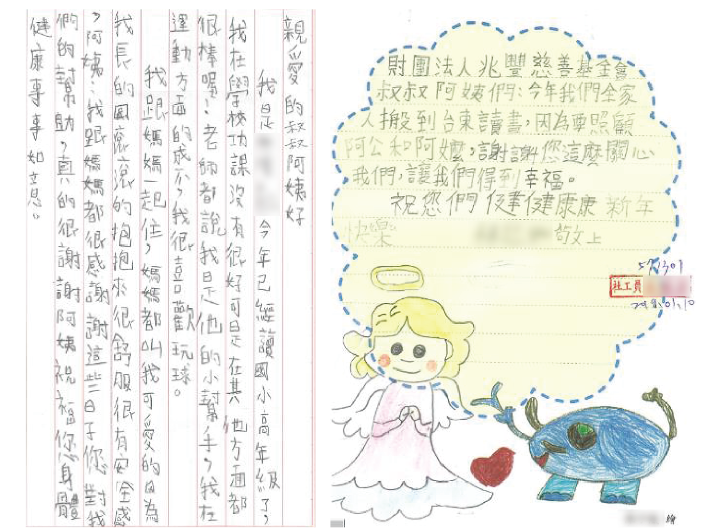 親愛的叔叔阿姨好
我是 今年已經讀國小高年級了，
我在學校功課沒有很好可是在其他方面都
很棒喔！老師都說我是他的小幫手，我在
運動方面的成不，我很喜歡玩球。
我跟媽媽一起住，媽媽都叫我可愛的因為
我長的圓滾滾的抱抱來很舒服很有安全感
，阿姨：我跟媽媽都很感謝謝這些日子您對我
們的謝助，真的很謝謝阿姨祝福您身體
健康事事如意。
財團法人兆豐慈善基金會
叔叔阿姨們：今年我們全家
人搬到台東讀書，因為要照顧
阿公和阿嬤，謝謝您這麼關心
我們，讓我們得到幸福。
祝您們健健康康新年
快樂 敬上
社工員